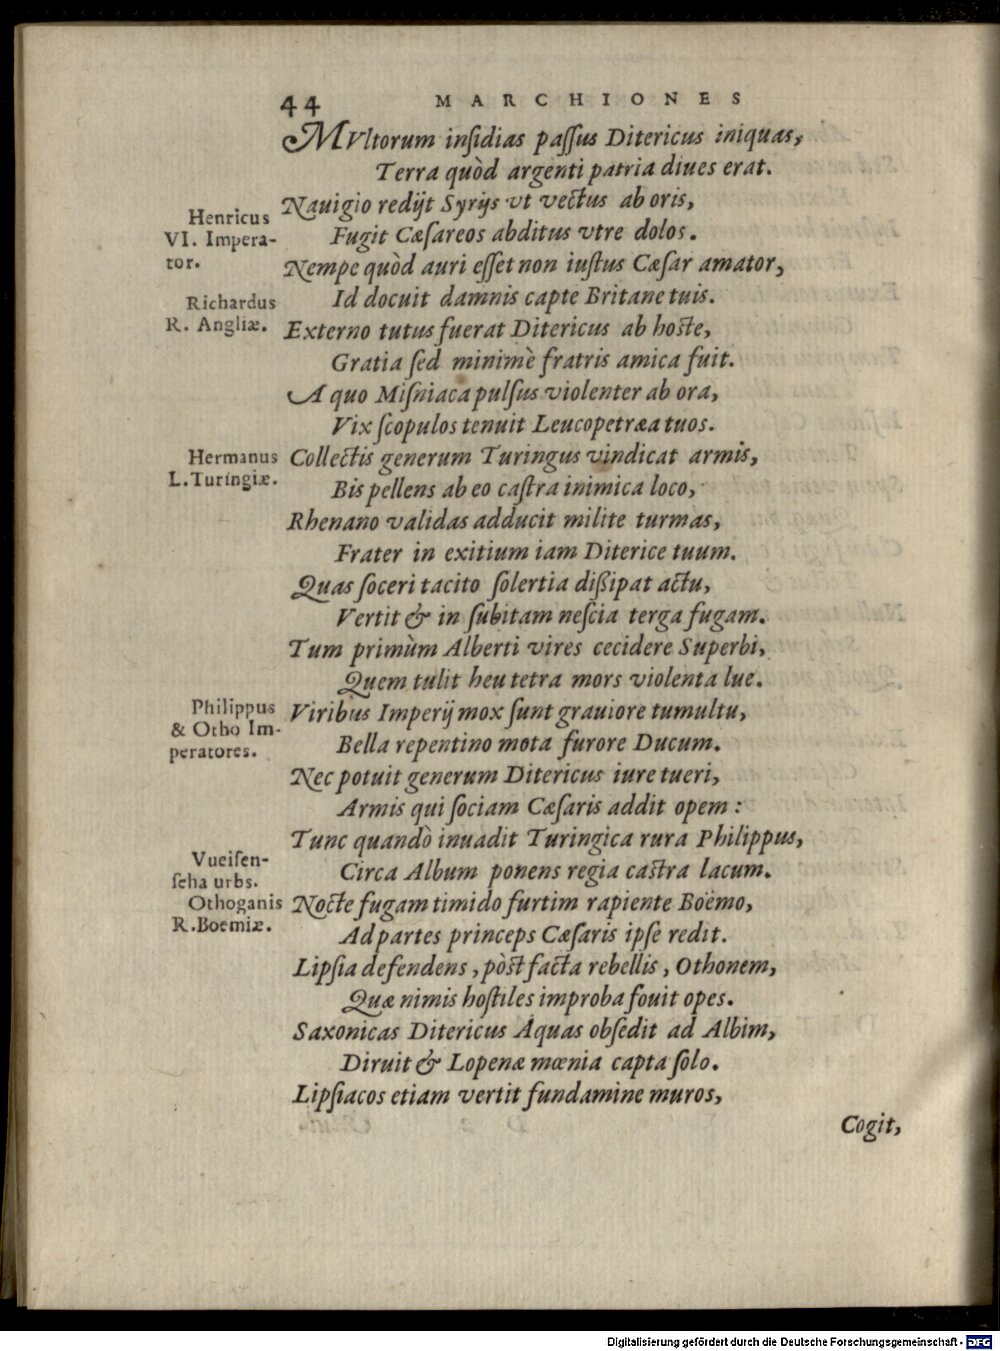 44 MARCHIONES
MVltorum inſidias paſſus Ditericus iniquas,
Terra quòd argenti patria diues erat.
Nauigio redijt Syrijs vt vectus ab oris,
Henricus
VI. Impera-
tor.
Fugit Cæſareos abditus vtre dolos.
Nempe quòd auri eſſet non iuſtus Cæſar amator,
Id docuit damnis capte Britane tuis.
Richardus
R. Angliæ.
Externo tutus fuerat Ditericus ab hoſte,
Gratia ſed minimè fratris amica fuit.
A quo Miſniaca pulſus violenter ab ora,
Vix ſcopulos tenuit Leucopetræa tuos.
Hermanus
L.Turingiæ.
Collectis generum Turingus vindicat armis,
Bis pellens ab eo caſtra inimica loco,
Rhenano validas adducit milite turmas,
Frater in exitium iam Diterice tuum.
Quas ſoceri tacito ſolertia diſsipat actu,
Vertit & in ſubitam neſcia terga fugam.
Tum primùm Alberti vires cecidere Superbi,
Quem tulit heu tetra mors violenta lue.
Philippus
& Otho Im-
peratores.
Viribus Imperij mox ſunt grauiore tumultu,
Bella repentino mota furore Ducum.
Nec potuit generum Ditericus iure tueri,
Armis qui ſociam Cæſaris addit opem :
Tunc quandò inuadit Turingica rura Philippus,
Vueiſen-
ſeha urbs.
Circa Album ponens regia caſtra lacum.
Othoganis
R.Boemiæ.
Nocte fugam timido furtim rapiente Boëmo,
Ad partes princeps Cæſaris ipſe redit.
Lipſia defendens, pòſt facta rebellis, Othonem,
Quæ nimis hoſtiles improba fouit opes.
Saxonicas Ditericus Aquas obſedit ad Albim,
Diruit & Lopenæ mœnia capta ſolo.
Lipſiacos etiam vertit fundamine muros,
Cogit,
Digitalisierung gefördert durch die Deutsche Forschungsgemeinschaft - DFG